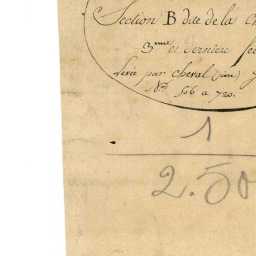 Section B dite de la
3me et dernière
Levée par Cheval
Nos 516 à 720.
1
2.50